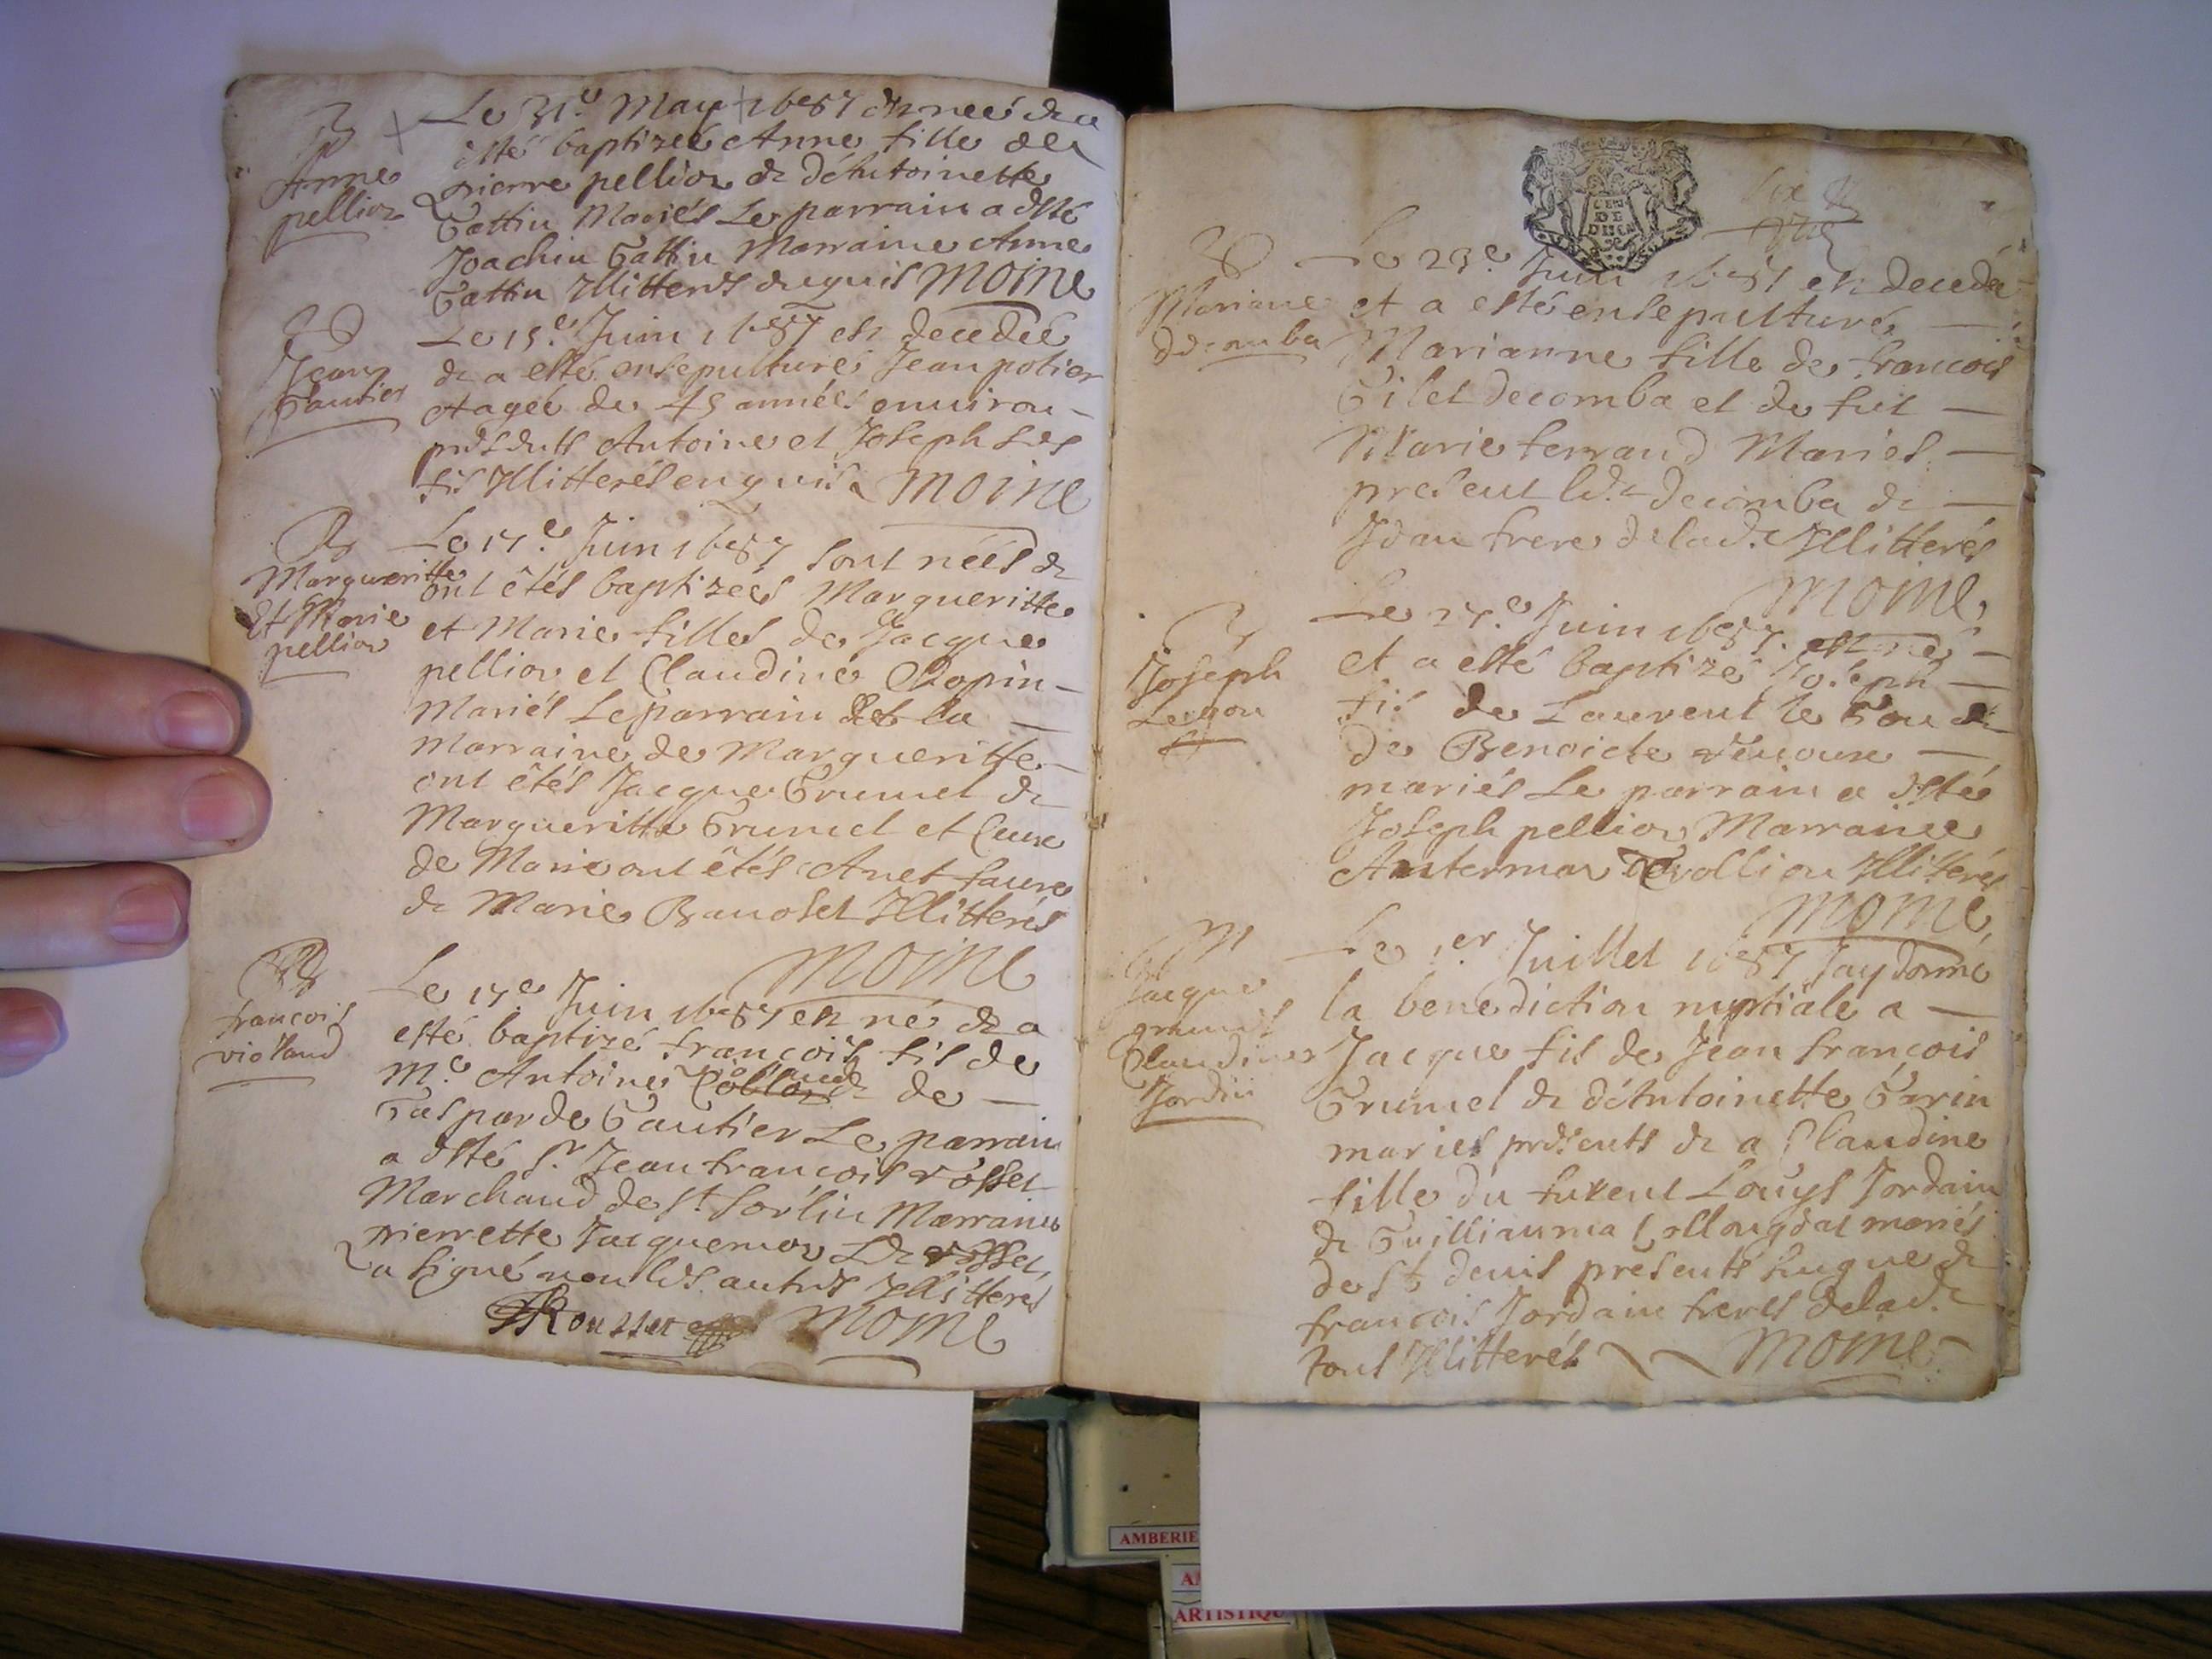 B
Anne
pellior
Le 31.e May 1687 est neé & a
esté baptizeé Anne fille de
pierre pellior & d'Antoinette
Gattin Mariés Le parrain a esté
Joachin Gattin Marraine Anne
Gattin Illitterés enquis Moine
Jean
Gautier
Le 15.e Juin 1687 est decedé
& a esté ensepulturé Jean potier
agé de 45 années environ -
presents Antoine et Joseph ses
fis Illitterés enquis Moine
B
Margueritte
Et Marie
pellior
Le 17.e Juin 1687 sont nées &
ont êtés baptizeés Margueritte
et Marie filles de Jacque
pellior et Claudine Chopin -
Mariés Le parrain et la —
Marraine de Margueritte -
ont êtés Jacque Grumel &
Margueritte Grumel et Ceux
de Marie ont êtés Anet faure
& Marie Illitterés
Moine
B
francois
violand
Le 17.e Juin 1687 est né & a
esté baptizé francois fis de
M.e Antoine & de —
Gasparde Gautier Le parrain
a esté S.r Jean francois rosset
Marchand de S.t Sorlin Marraine
pierrette Jacquemor Led. rosset
a signé non les autres Illitterés
Rousset Moine
GEN
DE
DIJON
Mariane
decomba
Le 23.e Juin 1687 est decedé
et a esté ensepulturé —
Marianne fille de francois
Gilet decomba et de fut —
Marie ferrand Mariés —
present led. decomba & —
Jean frere de lad. Illitterés
Moine
B
Joseph
Legon
Le 27.e Juin 1687 est né -
et a esté baptizé Joseph —
fis de Laurent le Gon &
de Benoicte —
mariés Le parrain a esté
Joseph pellior Marraine
Illiterés
Moine
M
Jacque
grumel
Claudine
Jordin
Le 1.er Juillet 1687 Jay donné
la benediction nuptiale a —
Jacque fis de Jean francois
Grumel & d'Antoinette Garin
mariés presents & a Claudine
fille du furent Louys Jordain
& Guilliauma mariés
de S.t denis presents hugue &
francois Jordain freres de lad.
tous Illitterés Moine
AMBERIE
ARTISTIQU